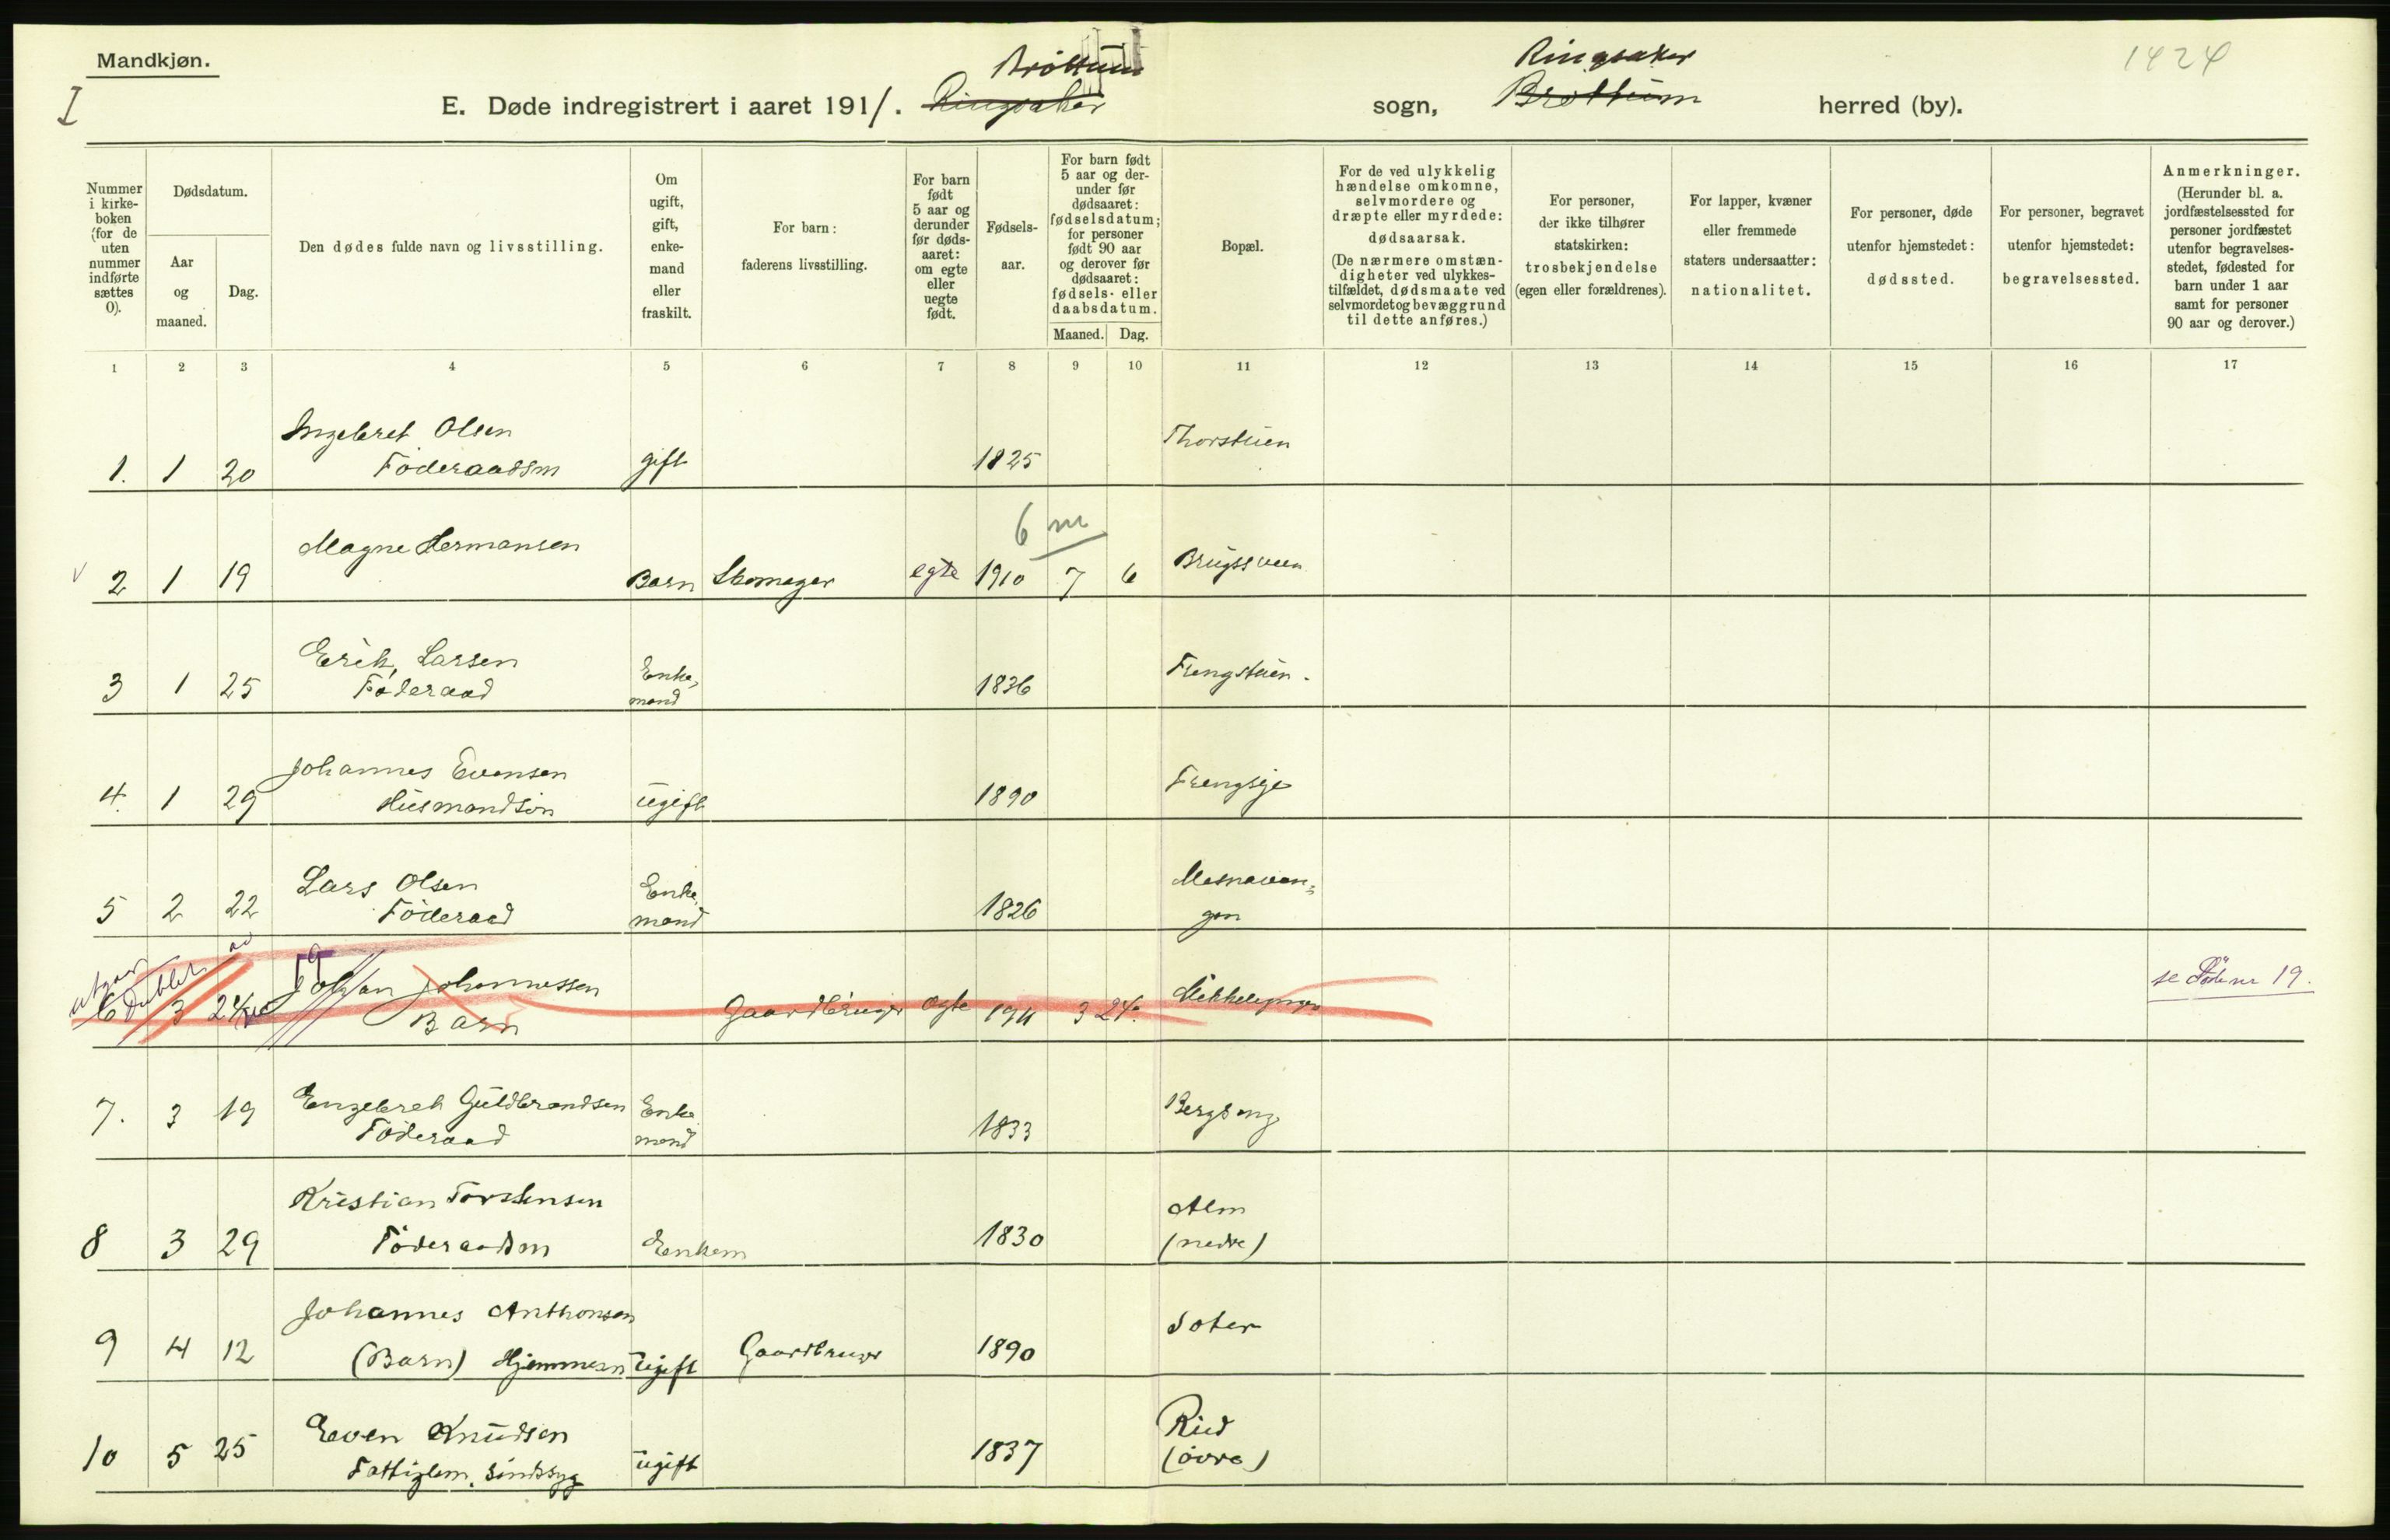 Mandkjøn.
I
Brøttum
Ringsaker
1424
E. Døde indregistrert i aaret 1911. Ringsaker sogn, Brøttum herred (by).
Nummer i kirkeboken (for de uten nummer indførte sættes 0).
Dødsdatum.
Aar og maaned.
Dag.
Den dødes fulde navn og livsstilling.
Om ugift, gift, enkemand eller fraskilt.
For barn: faderens livsstilling.
For barn født 5 aar og derunder før dødsaaret: om egte eller uegte født.
Fødselsaar.
For barn født 5 aar og derunder før dødsaaret: fødselsdatum; for personer født 90 aar og derover før dødsaaret: fødsels- eller daabsdatum.
Maaned. Dag.
Bopæl.
For de ved ulykkelig hændelse omkomne, selvmordere og dræpte eller myrdede: dødsaarsak. (De nærmere omstændigheter ved ulykkestilfældet, dødsmaate ved selvmordet og bevæggrund til dette anføres.)
For personer, der ikke tilhører statskirken: trosbekjendelse (egen eller forældrenes).
For lapper, kvæner eller fremmede staters undersaatter: nationalitet.
For personer, døde utenfor hjemstedet: dødssted.
For personer, begravet utenfor hjemstedet: begravelsessted.
Anmerkninger. (Herunder bl. a. jordfæstelsessted for personer jordfæstet utenfor begravelsesstedet, fødested for barn under 1 aar samt for personer 90 aar og derover.)
1 2 3 4 5 6 7 8 9 10 11 12 13 14 15 16 17
Ingebret Olsen Thorstuen
1. 1 20 Föderaadsm gift 1825
6 m
Magne Hermansen Brugssveen
v 2 1 19 Barn Skomager egte 1910 7 6
Erik Larsen Enke- Frengstuen.
3 1 25 Föderaad mand 1836
Johannes Evensen Frengseje
4. 1 29 Husmandsön ugift 1890
Lars Olsen Enke Mesnaven-
5 2 22 Föderaad mand 1826 gen
utgaar dublet
Johan Johannessen se Föd nr 19.
6 3 24 Barn Gaardbruger egte 1911 3 24.
Engebret Guldbrandsen Enke Bergseng
7. 3 19 Föderaad mand 1833
Kristian Torstensen Alm
8 3 29 Föderaadsm Enkem 1830 (nedre)
Johannes Anthonsen Soter
9 4 12 (Barn) Hjemmesn ugift Gaardbruger 1890
Even Knudsen Rud
10 5 25 Fattiglem. Sindssyg ugift 1837 (övre)